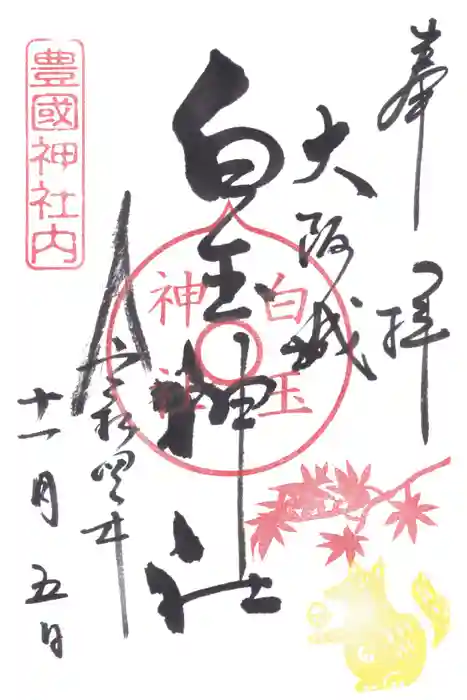 奉拝
大阪城
白玉神社
白玉
神社
令和四年
十一月五日
豊國神社内